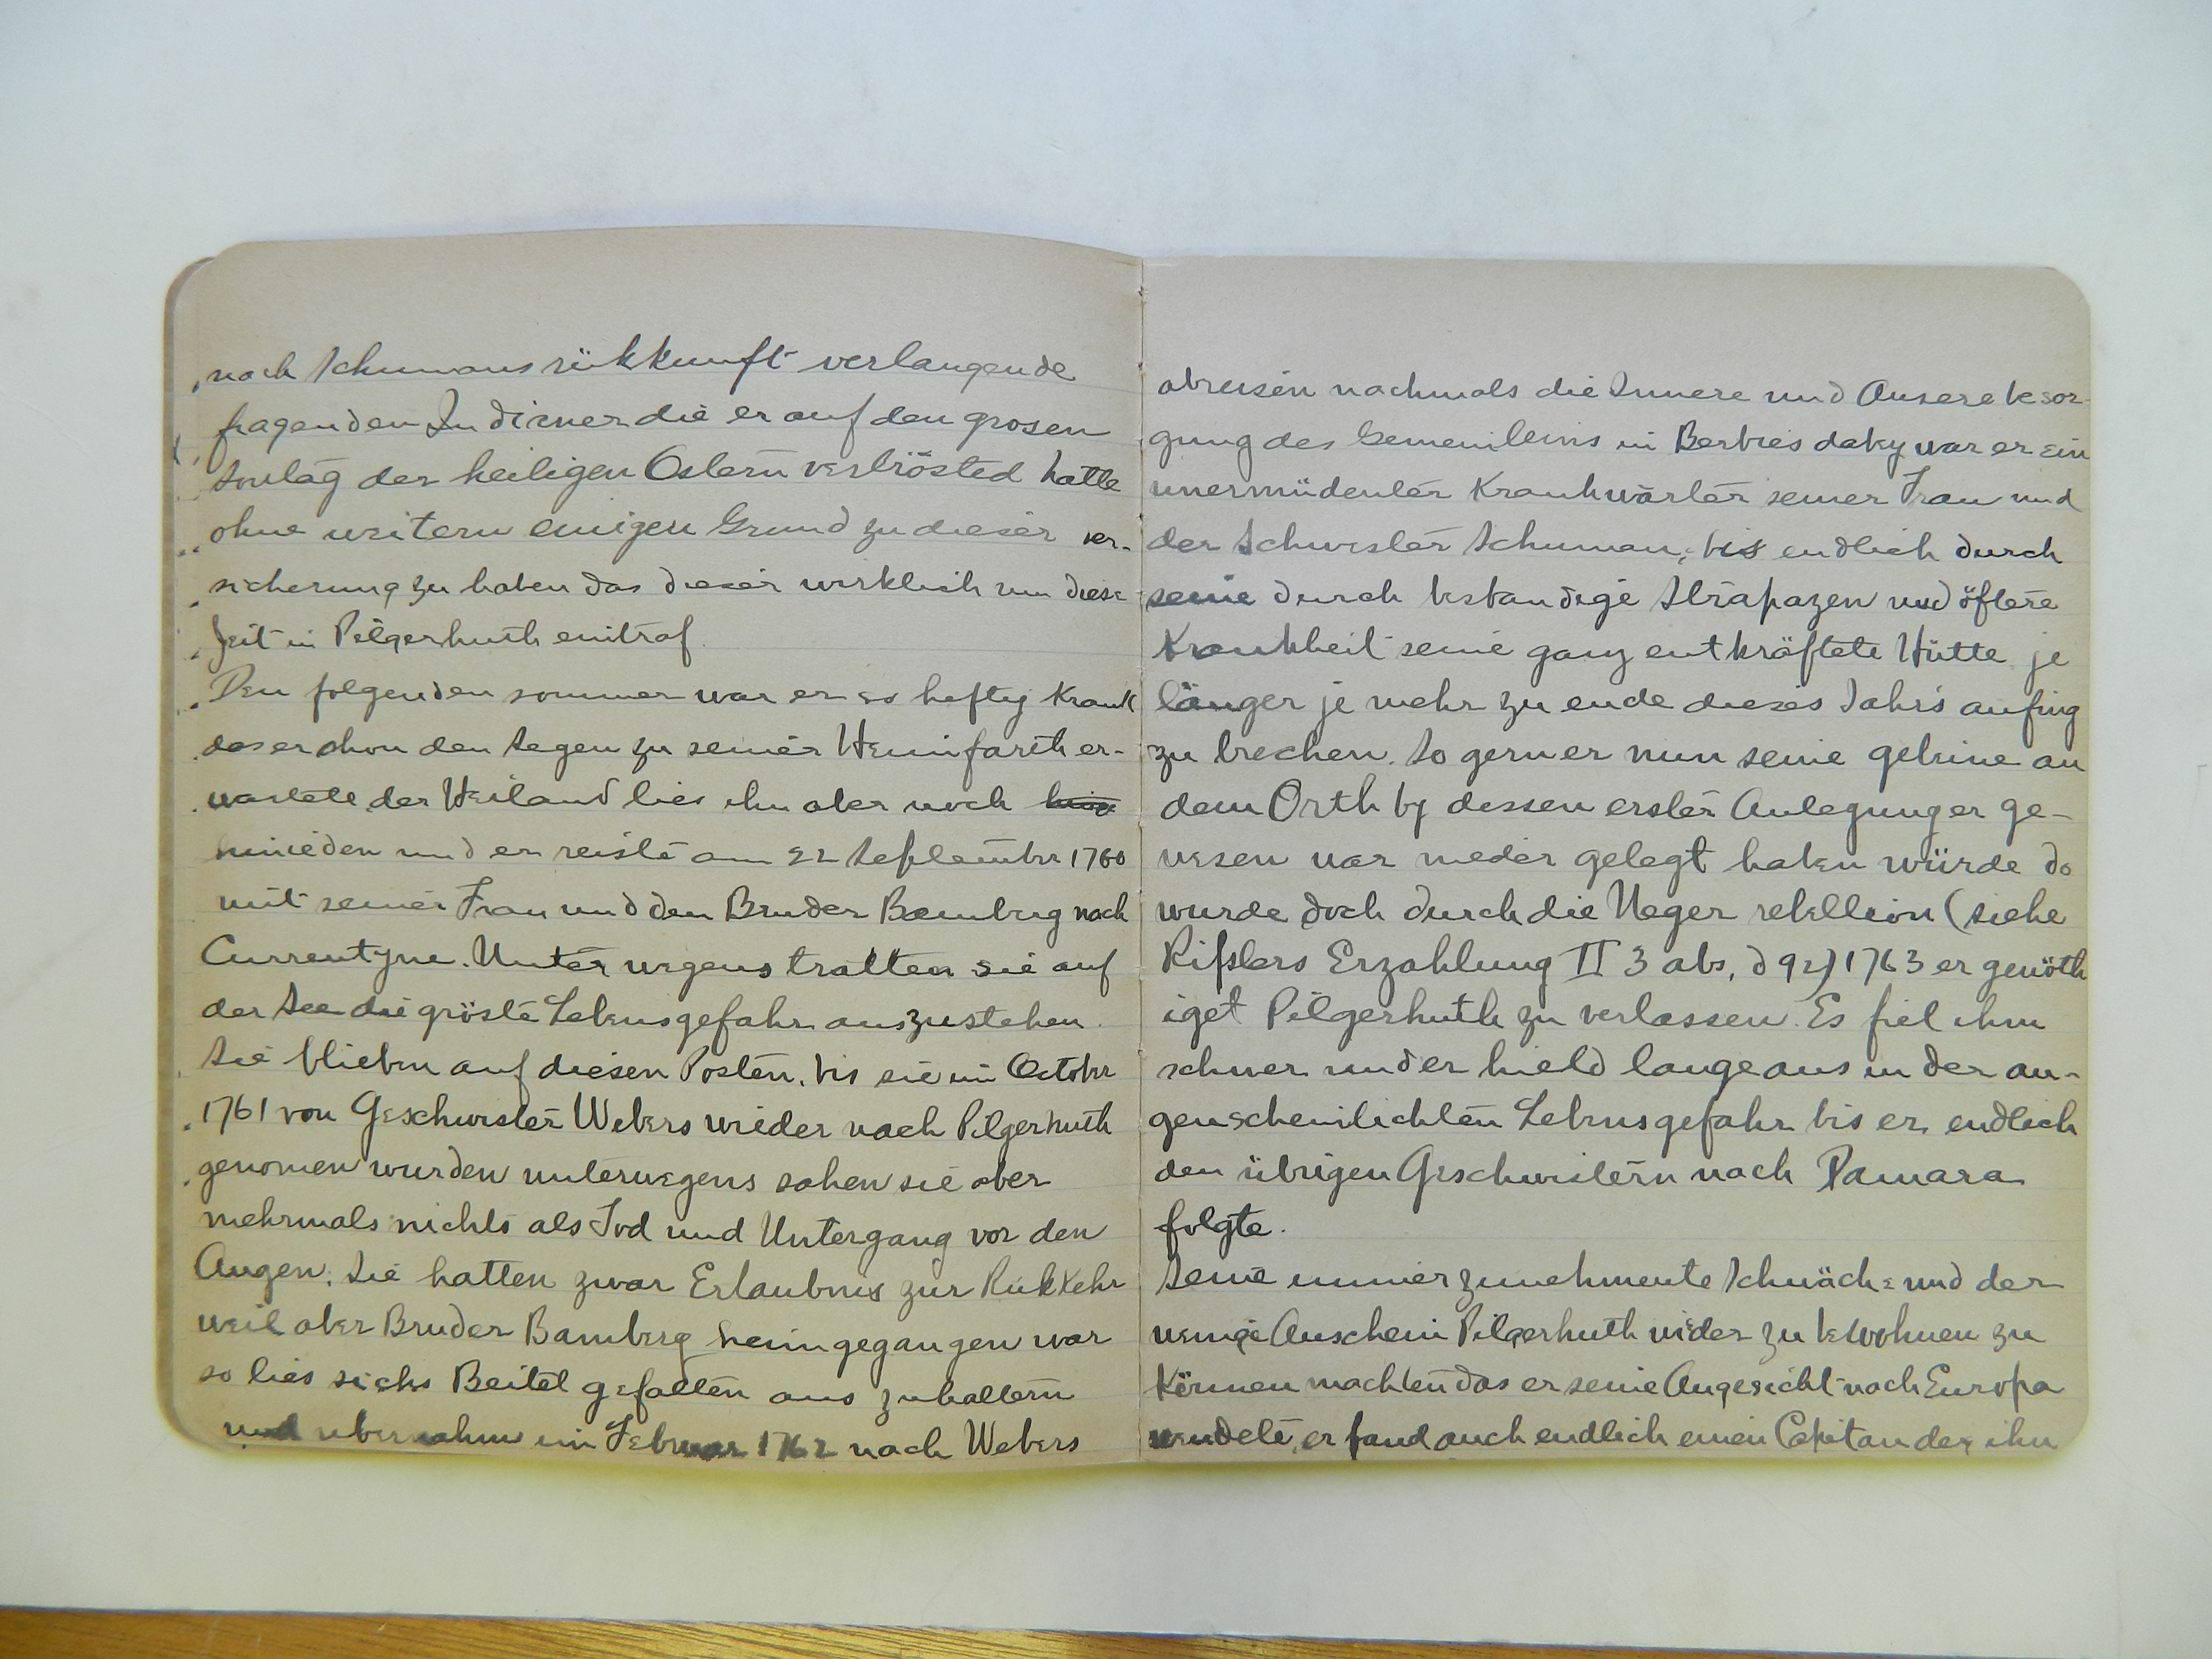 nach Schumans rükkunft verlangende
fragenden Indianer die er auf den grosen
Sontag der heiligen Ostern vertrösted hatte
ohne weitern einigen Grund zu dieser ver-
sicherung zu haben das dieser wirklich um diese
Zeit in Pilgerhuth eintraf.
Den folgenden sommer war er so heftig Krank
das er schon den Segen zu seiner Heimfarth er-
wartete der Heiland lies ihn aber noch
hinieden und er reiste am 22 September 1760
mit seiner Frau und den Bruder Bamberg nach
Currentyne. Unter wegens tratten sie auf
der See die gröste Lebensgefahr auszustehen.
Sie blieben auf diesen Posten, bis sie im October
1761 von Geschwister Webers wieder nach Pilgerhuth
genomen wurden unterwegens sahen sie aber
mehrmals nichts als Tod und Untergang vor den
Augen. Sie hatten zwar Erlaubnis zur Rükkehr
weil aber Bruder Bamberg heimgegangen war
so lies sichs Beitel gefallen aus zuhaltern
und ubernahm im Februar 1762 nach Webers
abreisen nachmals die Innere und Ausere besor-
gung des Gemeinleins in Berbies daby war er ein
unermüdenter Krankwärter seiner Frau und
der Schwester Schuman, bis endlich durch
seine durch bestandige Strapazen und öftere
Krankheit seine ganz entkräftete Hütte je
länger je mehr zu ende dieses Jahrs anfing
zu brechen. So gern er nun seine gebeine an
dem Orth by dessen erster Anlegung er ge-
wesen war nieder gelegt haben würde do
wurde doch durch die Neger rebellion (siehe
Rißlers Erzahlung II 3 abs, d 92) 1763 er genöth
iget Pilgerhuth zu verlassen. Es fiel ihm
schwer und er hield lange aus in der au-
genscheinlichten Lebensgefahr bis er endlich
den übrigen Geschwistern nach Damara
folgte.
Seine immer zunehmente Schwäche und der
wenige Anschein Pilgerhuth wider zu bewohnen zu
Können machten das er seine Angesicht nach Europa
wendete, er fand auch endlich einen Capitan der ihn